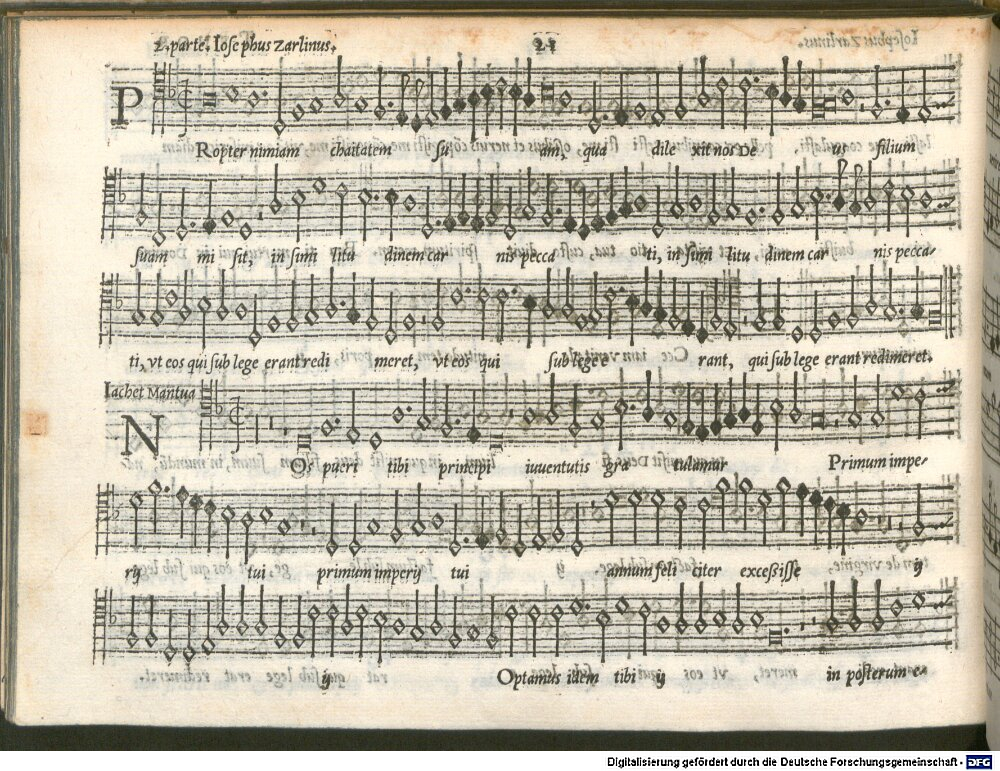 2. parte. Iosephus Zarlinus. 21
P
Ropter nimiam chaitatem su am, qua dile xit nos De us filium
suam mi sit, in simi litu dinem car nis pecca ti, in simi litu, dinem car nis pecca-
ti, vt eos qui sub lege erant redi meret, vt eos qui sub lege e rant, qui sub lege erant redimeret.
Iachet Mantua
N
Os pueri tibi principi iuuentutis gra tulamur Primum impe-
rij tui primum imperij tui ij annum feli citer exceßisse ij
ij Optamus idem tibi ij in posterum e-
Digitalisierung gefördert durch die Deutsche Forschungsgemeinschaft - DFG